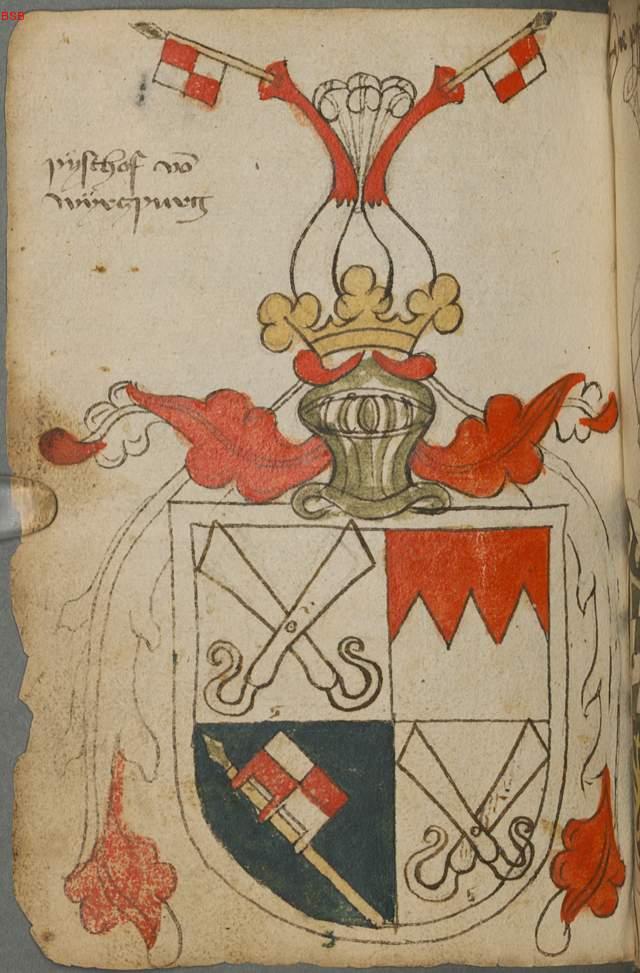 BSB
pyschof vō
wÿrczpurg